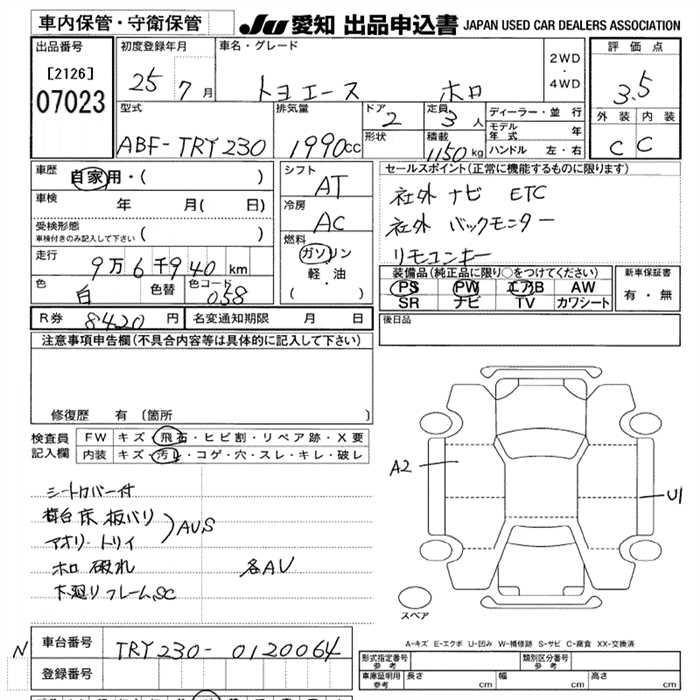 車内保管・守衛保管 JU 愛知 出品申込書 JAPAN USED CAR DEALERS ASSOCIATION
出品番号 初度登録年月 車名・グレード 評価点
[2126] 25 7月 トヨエース ホロ 2WD・4WD 3.5
07023
型式 排気量 ドア 定員 ディーラー・並行 外装 内装
ABF-TRY230 1990cc 2 3人 モデル年式 年 C C
形状 積載 1150kg ハンドル 左・右
車歴 自家用・( ) シフト セールスポイント(正常に機能するものに限ります)
AT 社外 ナビ ETC
車検 年 月( 日) 冷房 社外 バックモニター
受検形態 車検付きのみ記入して下さい ( ) AC リモコンキー
走行 9万6千940km 燃料 ガソリン 軽・油 ( ・ )
装備品(純正品に限り○をつけてください) 新車保証書
色 白 色替 色コード 058 PS PW エアB AW 有・無
SR ナビ TV カワシート
R券 8420円 名変通知期限 月 日 後日品
注意事項申告欄(不具合内容等は具体的に記入して下さい)
修復歴 有 [箇所 ]
検査員記入欄 FW キズ・飛石・ヒビ割・リペア跡・X要
内装 キズ・汚レ・コゲ・穴・スレ・キレ・破レ
A2 U1
シートカバー付
荷台床板バリ
アオリ・トリイ AUS
ホロ 破れ 各AU
下廻りフレームSC
スペア
A-キズ E-エクボ U-凹み W-補修跡 S-サビ C-腐食 XX-交換済
N 車台番号 TRY230-0120064
登録番号
形式指定番号 参考 類別区分番号 参考
車庫証明用 参考 長さ cm 幅 cm 高さ cm